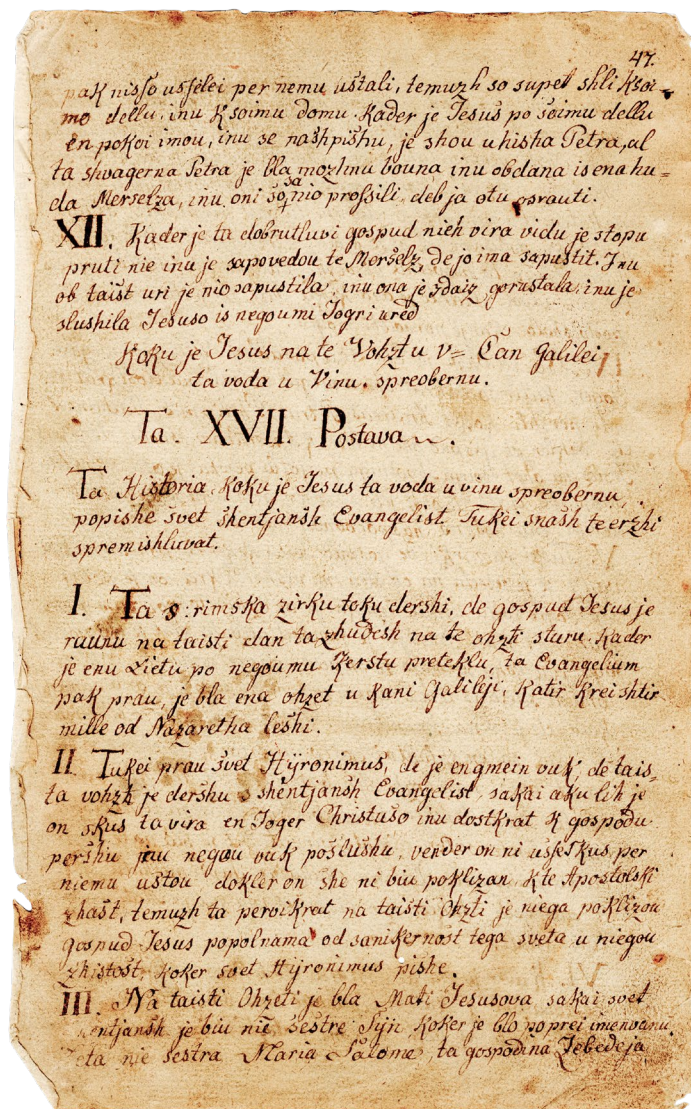 47.
pak nisso usselei per nemu ustali, temuzh so supet shli ksoi-
mo dellu, inu ksoimu domu. Kader je Jesus po soimu dellu
en pokoi imou, inu se nashpishu, je shou u hisha Petra, al
ta shvagerna Petra je bla mozhnu bouna inu obdana is ena hu=
da Merselza, inu oni so sa nio prossili, deb ja otu osrauti.
XII. Kader je ta dobrutluvi gospud nieh vira vidu je stopu
pruti nie inu je sapovedou te Merselz, de jo ima sapustit. Inu
ob taist uri je nio sapustila, inu ona je zdaiz gorustala, inu je
slushila Jesuso is negoumi Jogri ured
Koku je Jesus na te Vohztu v= Can Galilei
ta voda u Vinu spreobernu.
Ta. XVII. Postava.
Ta Historia, koku je Jesus ta voda u vinu spreobernu,
popishe svet shentjansh Evangelist. Tukei snash te erzhi
spremishluvat.
I. Ta s: rimska zirku toku dershi, de gospud Jesus je
raunu na taisti dan ta zhudesh na te ohzti sturu. Kader
je enu Lietu po negoumu Kerstu preteklu, ta Evangelium
pak prau, je bla ena ohzet u Kani Galileji, Katir krei shtir
mille od Nazaretha leshi.
II Tukei prau svet Hijronimus, de je engmein vuk, de tais-
ta vohzh je dershu s shentjansh Evangelist, sakai aku lih je
on skus ta vira en Joger Christuso inu dostkrat k gospodu
pershu inu negou vuk poslushu, vender on ni usseskus per
niemu ustou dokler on she ni biu poklizan, kte Apostolski
zhast, temuzh ta pervikrat na taisti Ohzti je niega poklizou
gospud Jesus popolnama od sanikernost tega sveta u niegou
zhistost, koker svet Hijronimus pishe.
III. Na taisti Ohzeti je bla Mati Jesusova sakai svet
shentjansh je biu nie sestre Sijn, koker je blo poprei imenvanu,
ta nie sestra Maria Salome, ta gospodina Zebedeja